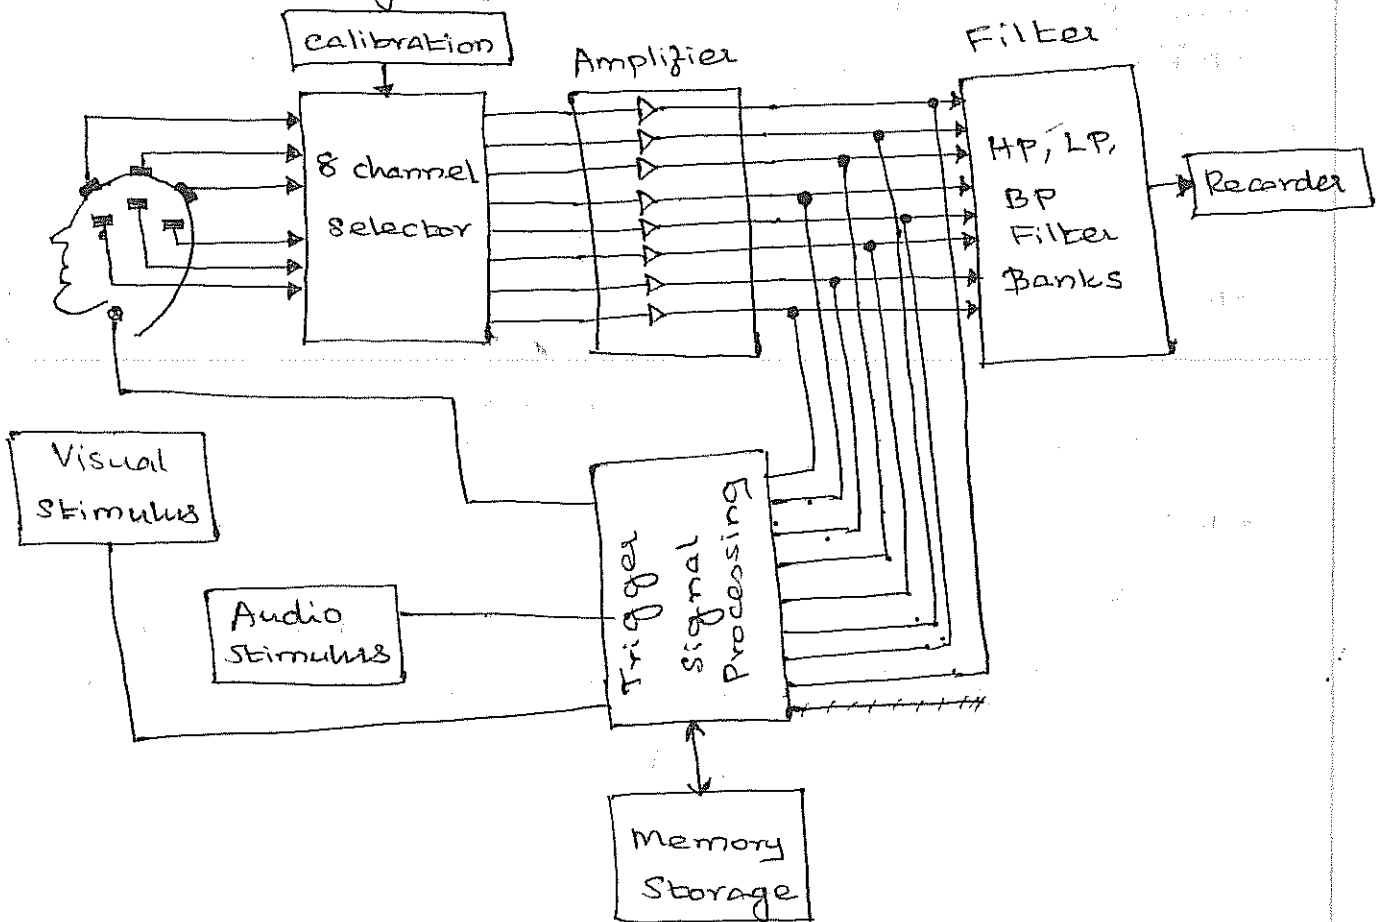 Calibration
Amplifier
Filter
8 channel
Selector
HP, LP,
BP
Filter
Banks
Recorder
Visual
Stimulus
Audio
Stimulus
Trigger
Signal
Processing
Memory
Storage